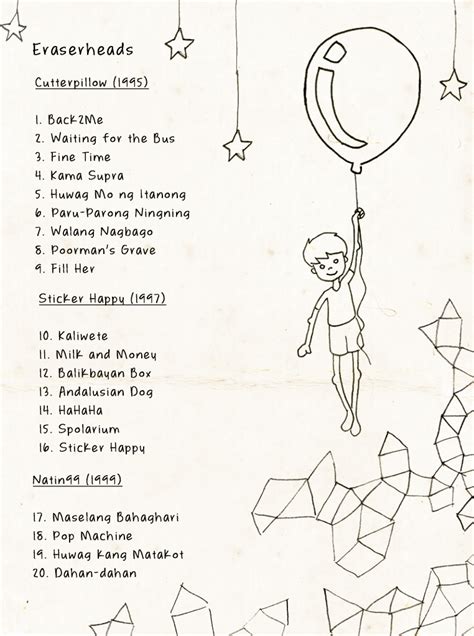 Eraserheads
Cutterpillow (1995)
1. Back2Me
2. Waiting for the Bus
3. Fine Time
4. Kama Supra
5. Huwag Mo ng Itanong
6. Paru-Parong Ningning
7. Walang Nagbago
8. Poorman's Grave
9. Fill Her
Sticker Happy (1997)
10. Kaliwete
11. Milk and Money
12. Balikbayan Box
13. Andalusian Dog
14. HaHaHa
15. Spolarium
16. Sticker Happy
Natin99 (1999)
17. Maselang Bahaghari
18. Pop Machine
19. Huwag Kang Matakot
20. Dahan-dahan